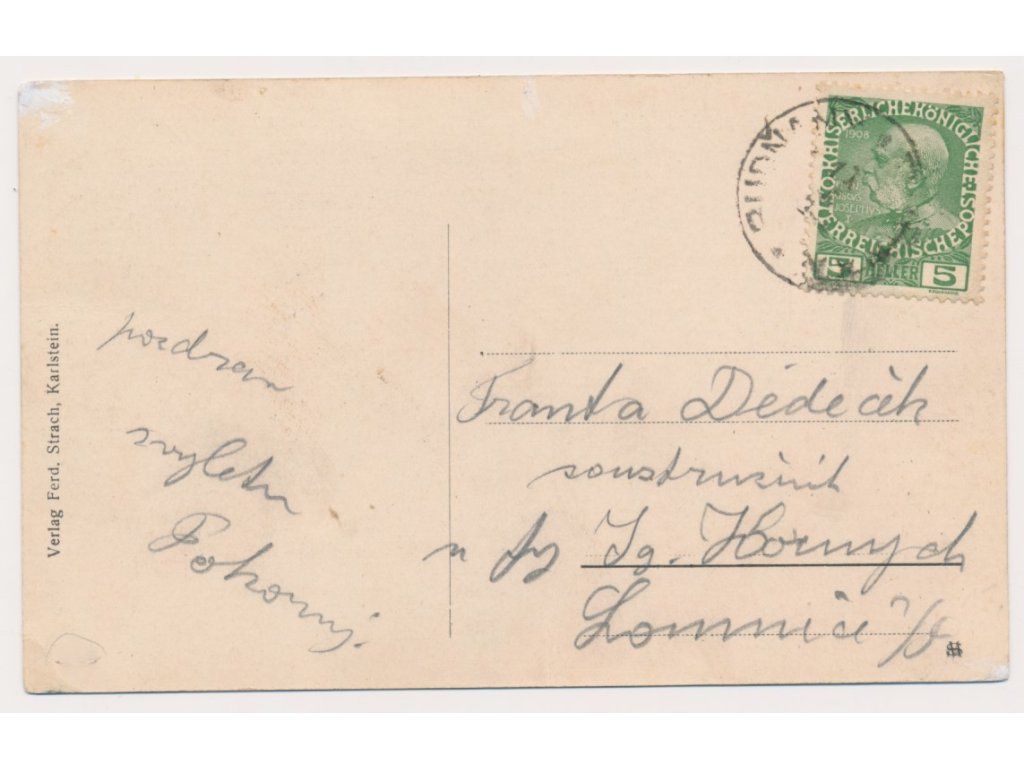 Verlag Ferd. Strach, Karlstein.
pozdrav
z vyletu
Pokorný.
KAISERLICHE KÖNIGLICHE
ÖSTERREICHISCHE POST
1908
JOSEPHVS
I
5 HELLER 5
Franta Dědeček
soustružník
u fy Ig. Horných
Lomnice